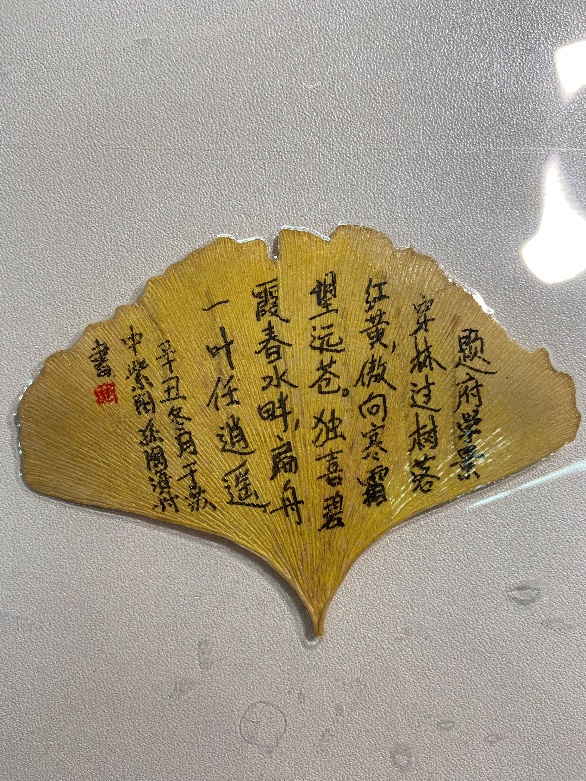 题府学景
穿林过树茗
红黄,傲向寒霜
望远苍。独喜碧
霞春水畔,扁舟
一叶任逍遥
辛丑冬月于敬
中紫阁孙国海行
书